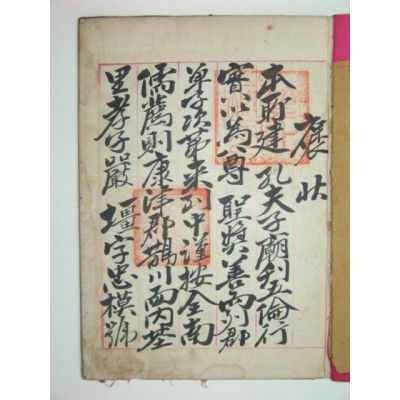 褒狀
本所建 孔夫子廟刊五倫行
實以爲尊 聖獎善而列郡
單子次第來到中謹按全南
儒薦則康津郡鵲川面內基
里孝子嚴 壃字忠模號